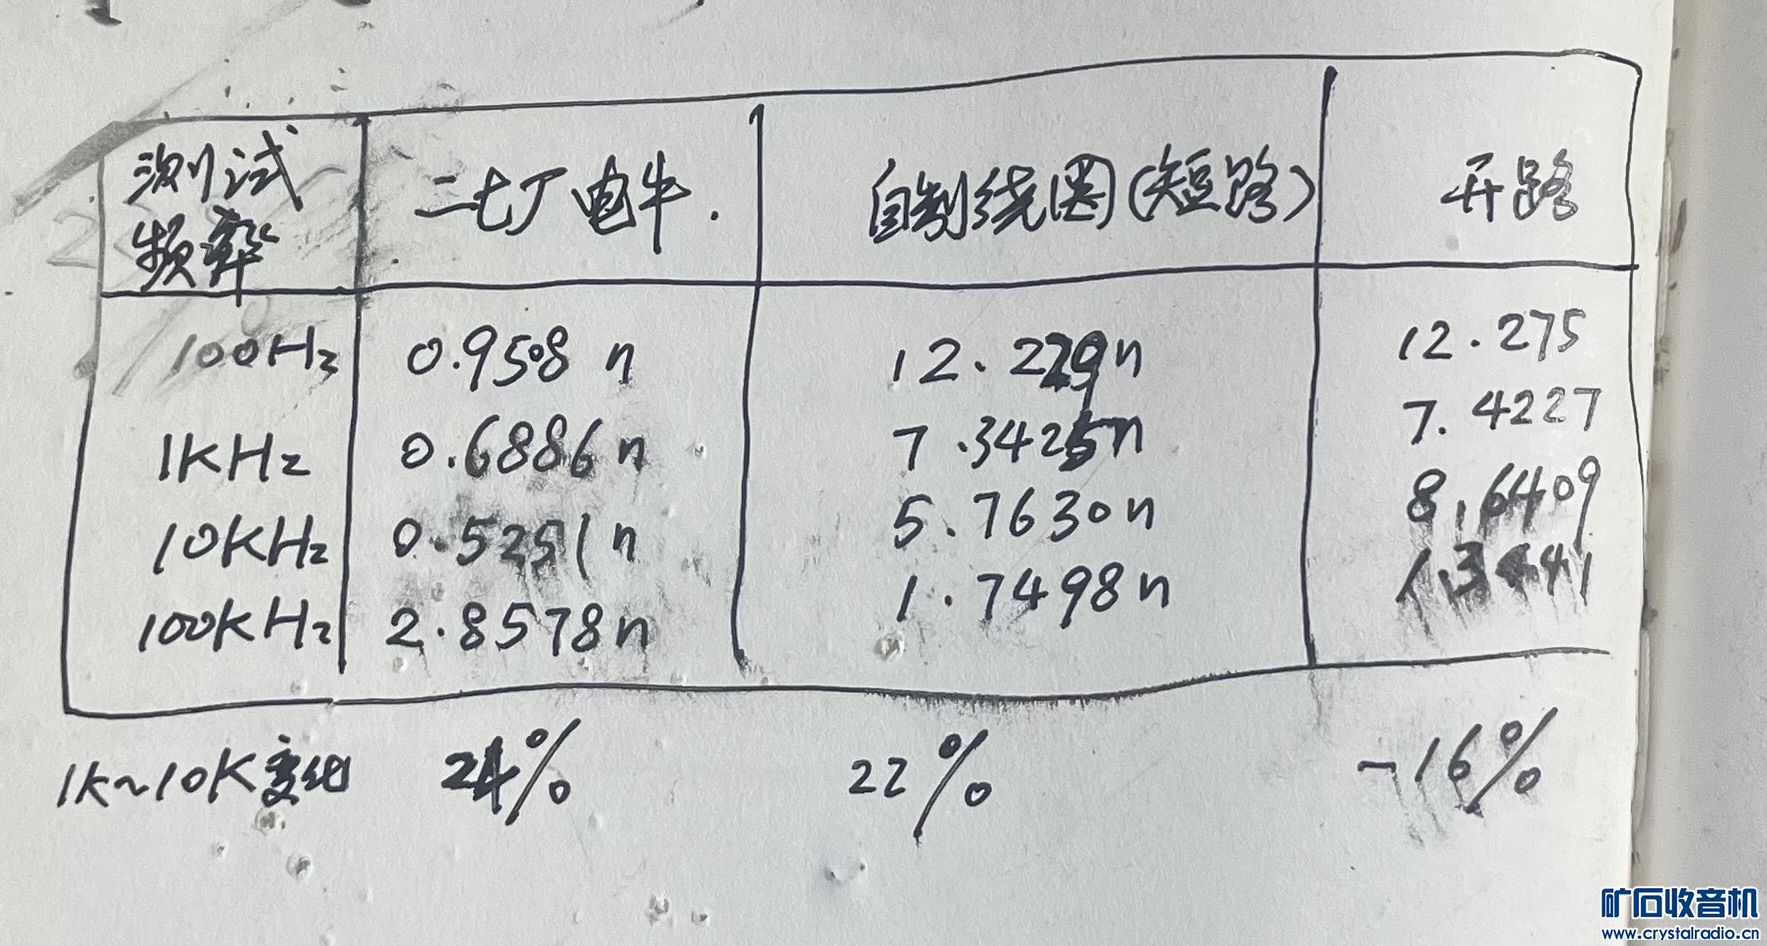 测试频率 二七厂电牛. 自制线圈(短路) 开路
100Hz 0.9508n 12.229n 12.275
1KHz 0.6886n 7.3425n 7.4227
10KHz 0.5251n 5.7630n 8.6409
100KHz 2.8578n 1.7498n 1.3441
1K~10K变化 24% 22% -16%
矿石收音机
www.crystalradio.cn